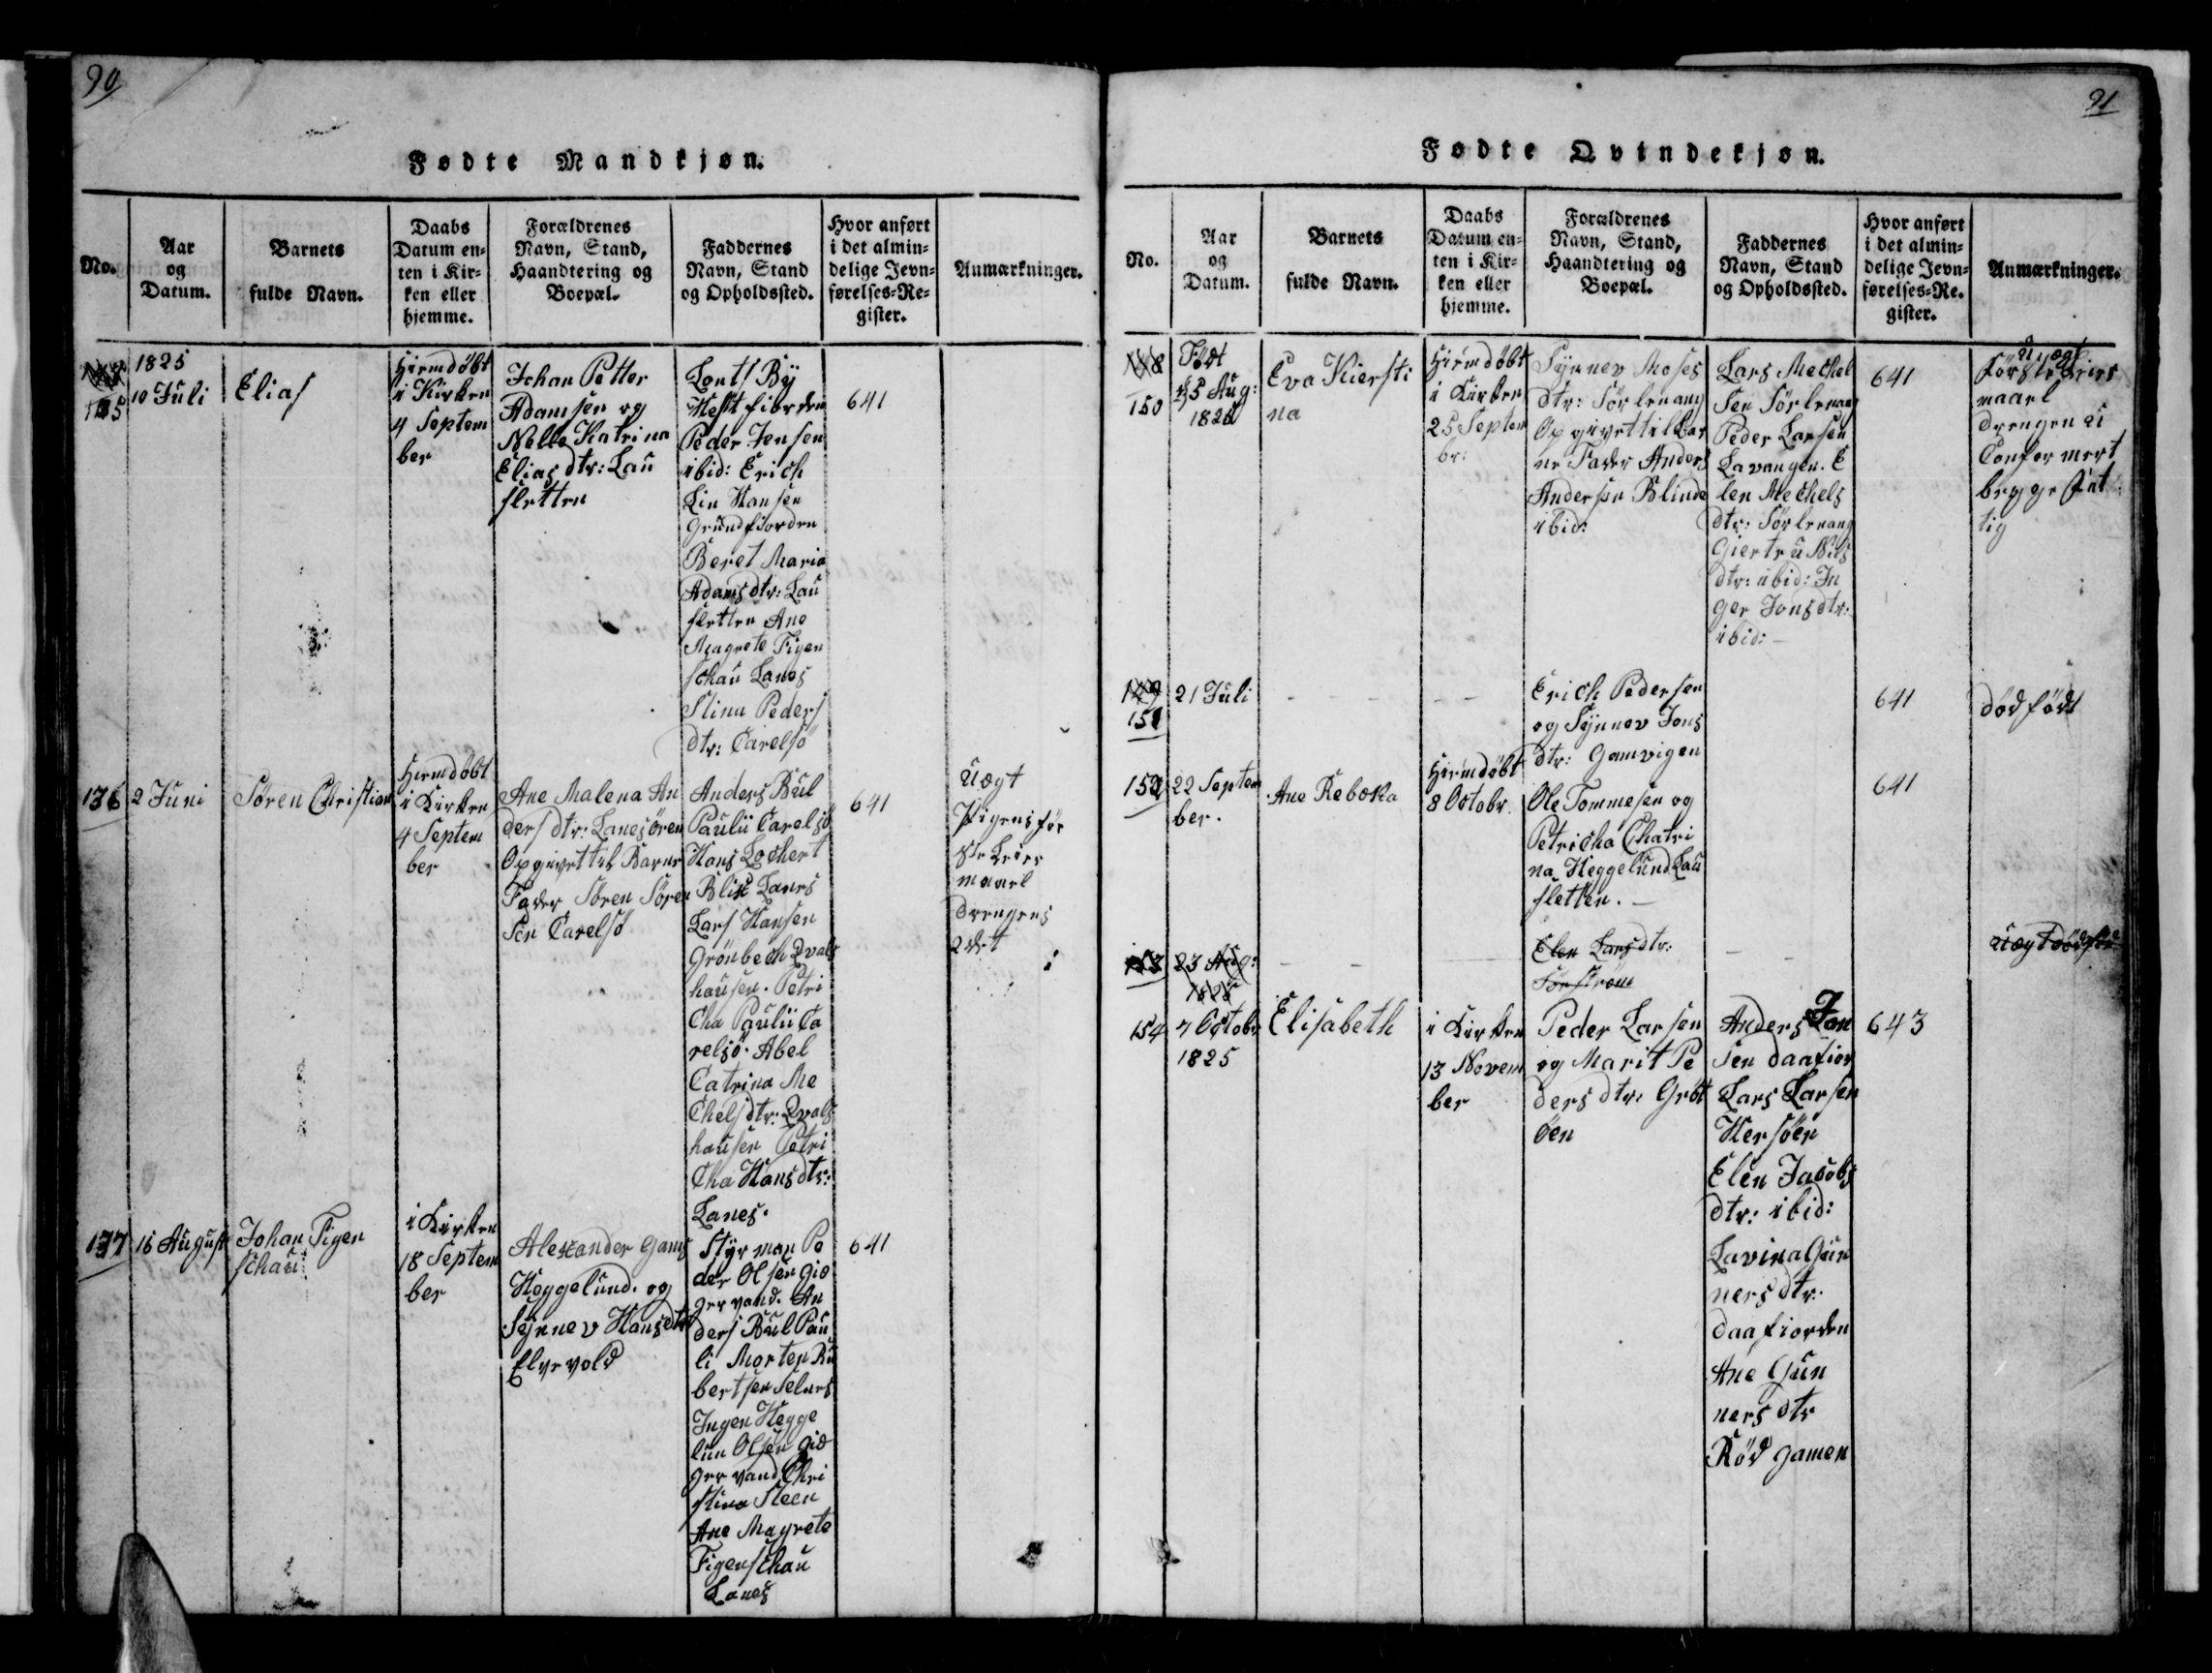 90
Fødte Mandkjøn.
No.
Aar
og
Datum.
Barnets
fulde Navn.
Daabs
Datum en-
ten i Kir-
ken eller
hjemme.
Forældrenes
Navn, Stand,
Haandtering og
Boepæl.
Faddernes
Navn, Stand
og Opholdssted.
Hvor anført
i det almin-
delige Jevn-
førelses-Re-
gister.
Anmærkninger.
135
1825
10 Juli
Elias
Hiemdøbt
i Kirken
4 Septem
ber
Johan Petter
Adamsen og
Nelle Katrina
Elias dtr: Lau
sletten
Lonts By
Hestfiorden
Peder Jensen
ibid: Erich
Lin Hansen
Grundfiorden
Beret Maria
Adams dtr: Lau
sletten Ane
Magrete Figen
schau Lanes
Stina Peders
dtr: Carelsø
641
136
2 Juni
Søren Christian
Hiemdøbt
i Kirken
4 Septem
ber
Ane Malena An
ders dtr: Lanesøren
Opgivet til Barne
Fader Søren Søren
Sen Carelsø
Anders Bul
Paulii Carelsø
Hans Lochert
Blix Lanes
Lars Hansen
Grønbech Qvals
hausen. Petri
Cha Paulii Ca
relsø. Abel
Catrina Me
Chels dtr: Qvals
hausen Petri
Cha Hans dtr:
Lanes.
641
Uægt
Pigens før
ste Leier
maael
Drengens
2det
137
16 August
Johan Figen
schau
i Kirken
18 Septem
ber
Alexander Gams
Heggelund. og
Synnev Hans dtr
Elvevold
Styrman Pe
der Olsen Gie
gervand. An
ders Bul Pau
li Morten Ru
bertsen Selnes
Ingen Hegge
lun Olsen Gie
gervand Chri
stina Steen
Ane Magrete
Figenschau
Lanes
641
91
Fødte Qvindekjøn.
No.
Aar
og
Datum.
Barnets
fulde Navn.
Daabs
Datum en-
ten i Kir-
ken eller
hjemme.
Forældrenes
Navn, Stand,
Haandtering og
Boepæl.
Faddernes
Navn, Stand
og Opholdssted.
Hvor anført
i det almin-
delige Jevn-
førelses-Re.
gister.
Anmærkninger.
148
150
Født
5 Aug:
1825
Eva Kiersti
na
Hiemdøbt
i Kirken
25 Septem
br:
Synnev Moses
dtr: Sørlenang
Opgivet til Bar
ne Fader Anders
Andersen Blinde
ibid:
Lars Mechel
Sen Sørlenang
Peder Larsen
Lavangen. E
len Mechels
dtr: Sørlenang
Giertru Nils
dtr: ibid: In
ger Jons dtr:
ibid:
641
Uægt
Første Leier
maael
Drengen u
Confermert
begge
tig
149
151
21 Juli
Erich Pedersen
og Synnev Jons
dtr: Gamvigen
641
dødfødt
152
22 Septem
ber.
Ane Rebecka
Hiemdøbt
8 Octobr.
Ole Tommesen og
Petricha Chatri
na Heggelund Lau
sletten.
641
153
23 Aug:
1825
Elen Lars dtr:
Sørstrøm
Uægt dødfød
154
7 Octobr
1825
Elisabeth
i Kirken
13 Novem
ber
Peder Larsen
og Marit Pe
ders dtr: Grøt
øen
Anders Jon
Sen Daafior
Lars Larsen
Hersøen
Elen Jacobs
dtr: ibid:
Lavina Gun
ners dtr.
Daafiorden
Ane Gun
ners dtr
Rød gamen
643